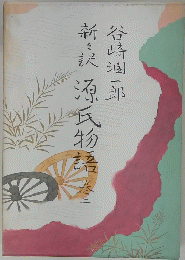 谷崎潤一郎
新々訳
源氏物語
巻二